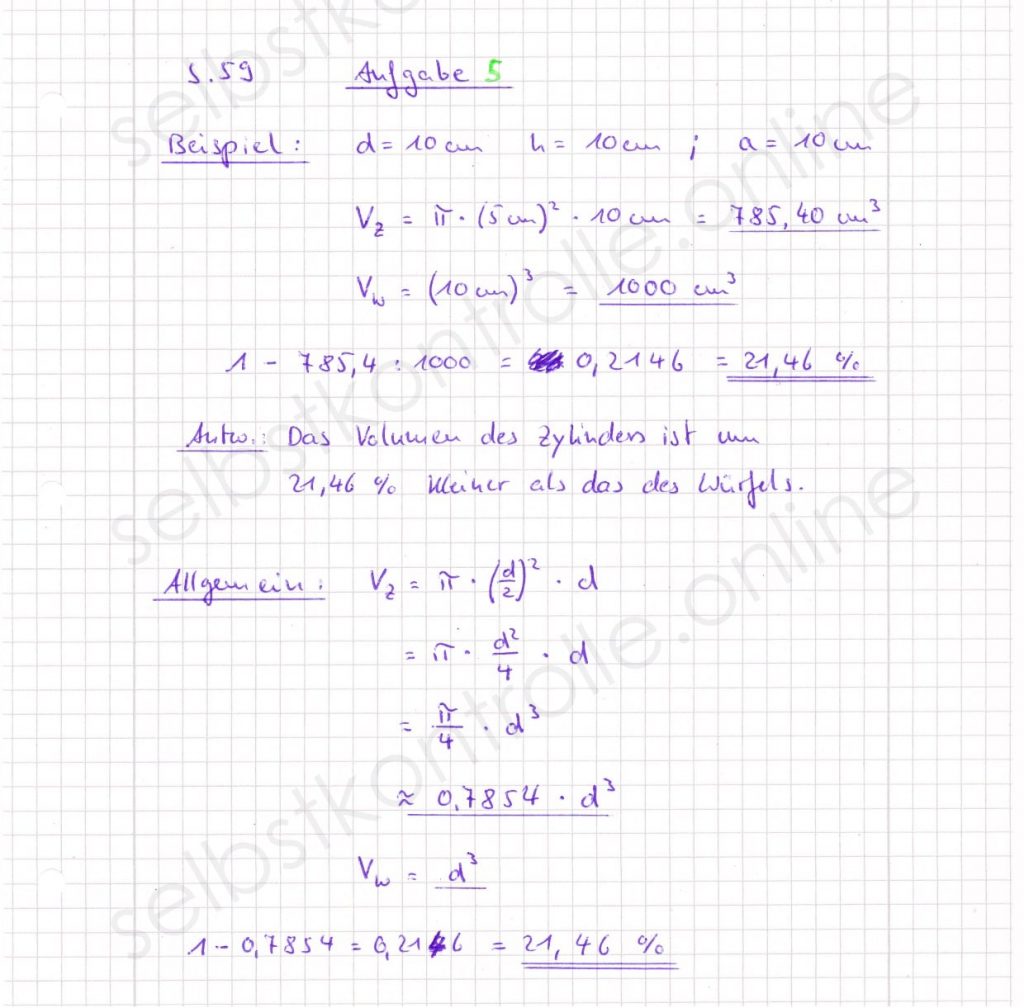 S. 59 Aufgabe 5
Beispiel: d = 10 cm h = 10 cm ; a = 10 cm
V_z = π · (5 cm)² · 10 cm = 785,40 cm³
V_w = (10 cm)³ = 1000 cm³
1 - 785,4 : 1000 = 0,2146 = 21,46 %
Antw.: Das Volumen des Zylinders ist um
21,46 % kleiner als das des Würfels.
Allgemein: V_z = π · (d/2)² · d
= π · d²/4 · d
= π/4 · d³
≈ 0,7854 · d³
V_w = d³
1 - 0,7854 = 0,2146 = 21,46 %
selbstkontrolle.online
selbstkontrolle.online